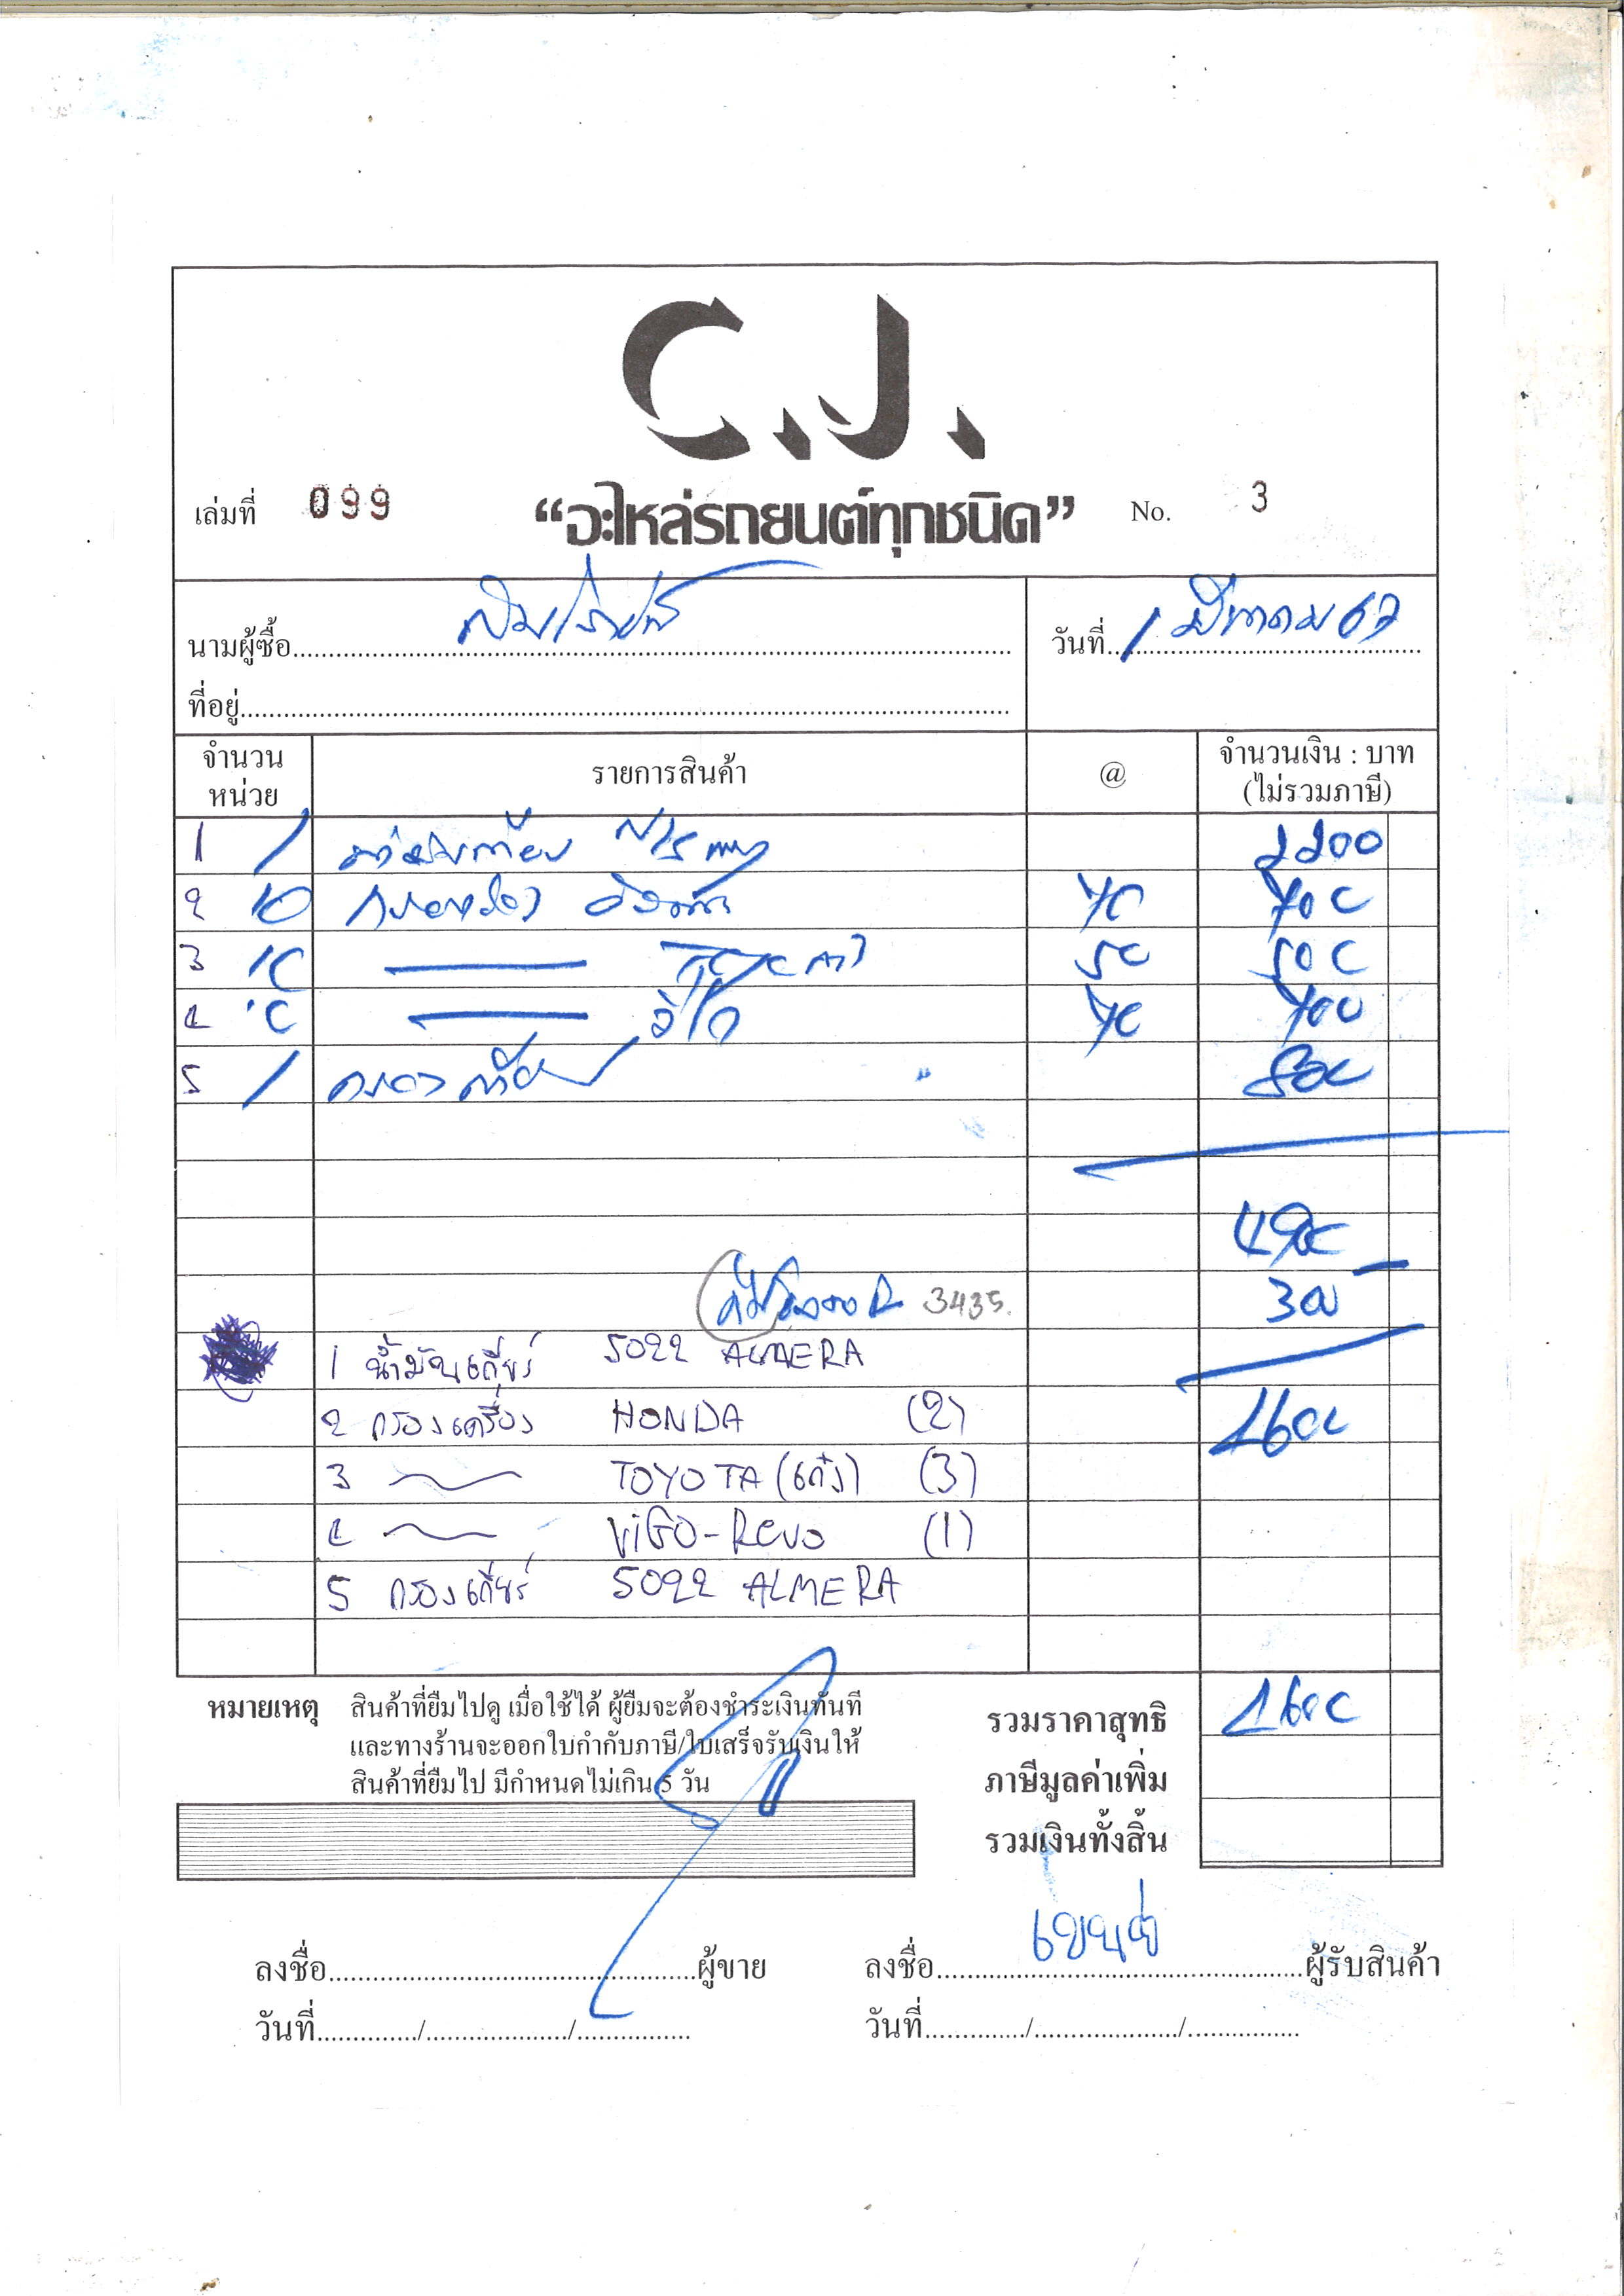 C.J.
เล่มที่ 099 “อะไหล่รถยนต์ทุกชนิด” No. 3
นามผู้ซื้อ
วันที่ 1 มีนาคม 67
ที่อยู่
จำนวน หน่วย รายการสินค้า @ จำนวนเงิน : บาท (ไม่รวมภาษี)
1 / 2200
2 10 กรองเครื่อง 70 700
3 10 50 500
4 10 วีโก้ 70 700
5 / กรองเกียร์ 800
4900
3435. 300
1 น้ำมันเกียร์ 5022 ALMERA
2 กรองเครื่อง HONDA (2) 4600
3 TOYOTA (เก๋ง) (3)
4 ViGO-Revo (1)
5 กรองเกียร์ 5022 ALMERA
หมายเหตุ สินค้าที่ยืมไปดู เมื่อใช้ได้ ผู้ยืมจะต้องชำระเงินทันที
และทางร้านจะออกใบกำกับภาษี/ใบเสร็จรับเงินให้
สินค้าที่ยืมไป มีกำหนดไม่เกิน 5 วัน
รวมราคาสุทธิ 4600
ภาษีมูลค่าเพิ่ม
รวมเงินทั้งสิ้น
ลงชื่อ ผู้ขาย ลงชื่อ ผู้รับสินค้า
วันที่ / / วันที่ / /